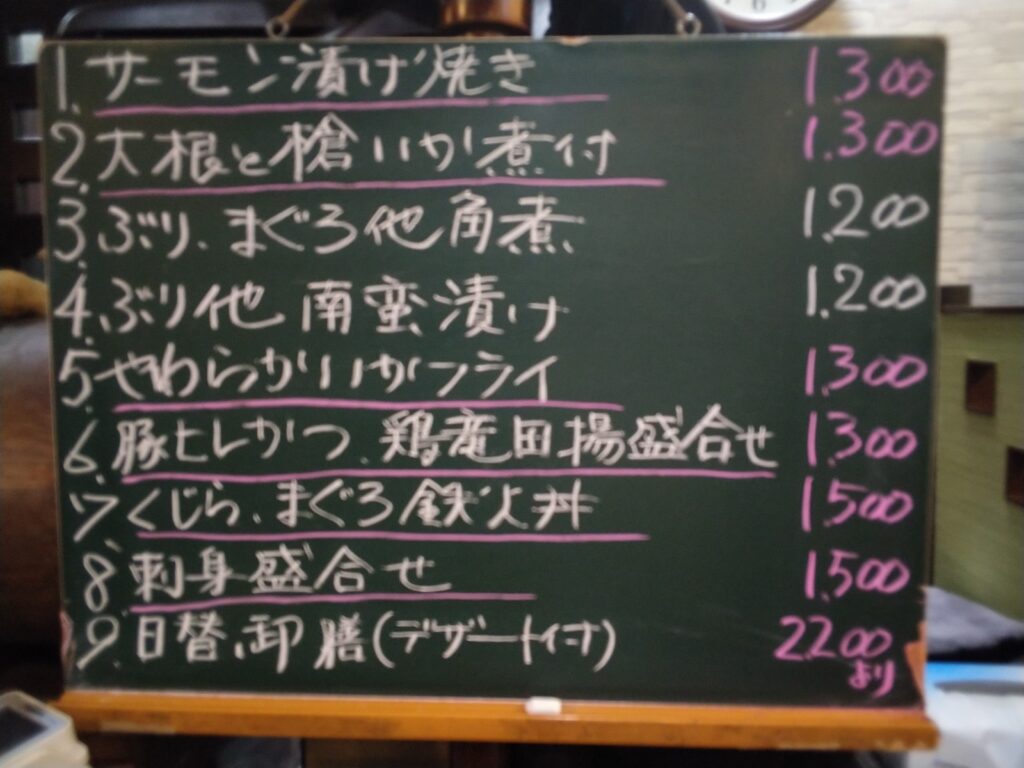 1. サーモン漬け焼き 1.300
2. 大根と槍いか煮付 1.300
3. ぶり、まぐろ他角煮 1.200
4. ぶり他 南蛮漬け 1.200
5. やわらかいいかフライ 1.300
6. 豚ヒレかつ、鶏竜田揚盛合せ 1.300
7. くじら、まぐろ鉄火丼 1.500
8. 刺身盛合せ 1.500
9. 日替、御膳(デザート付) 2.200
より